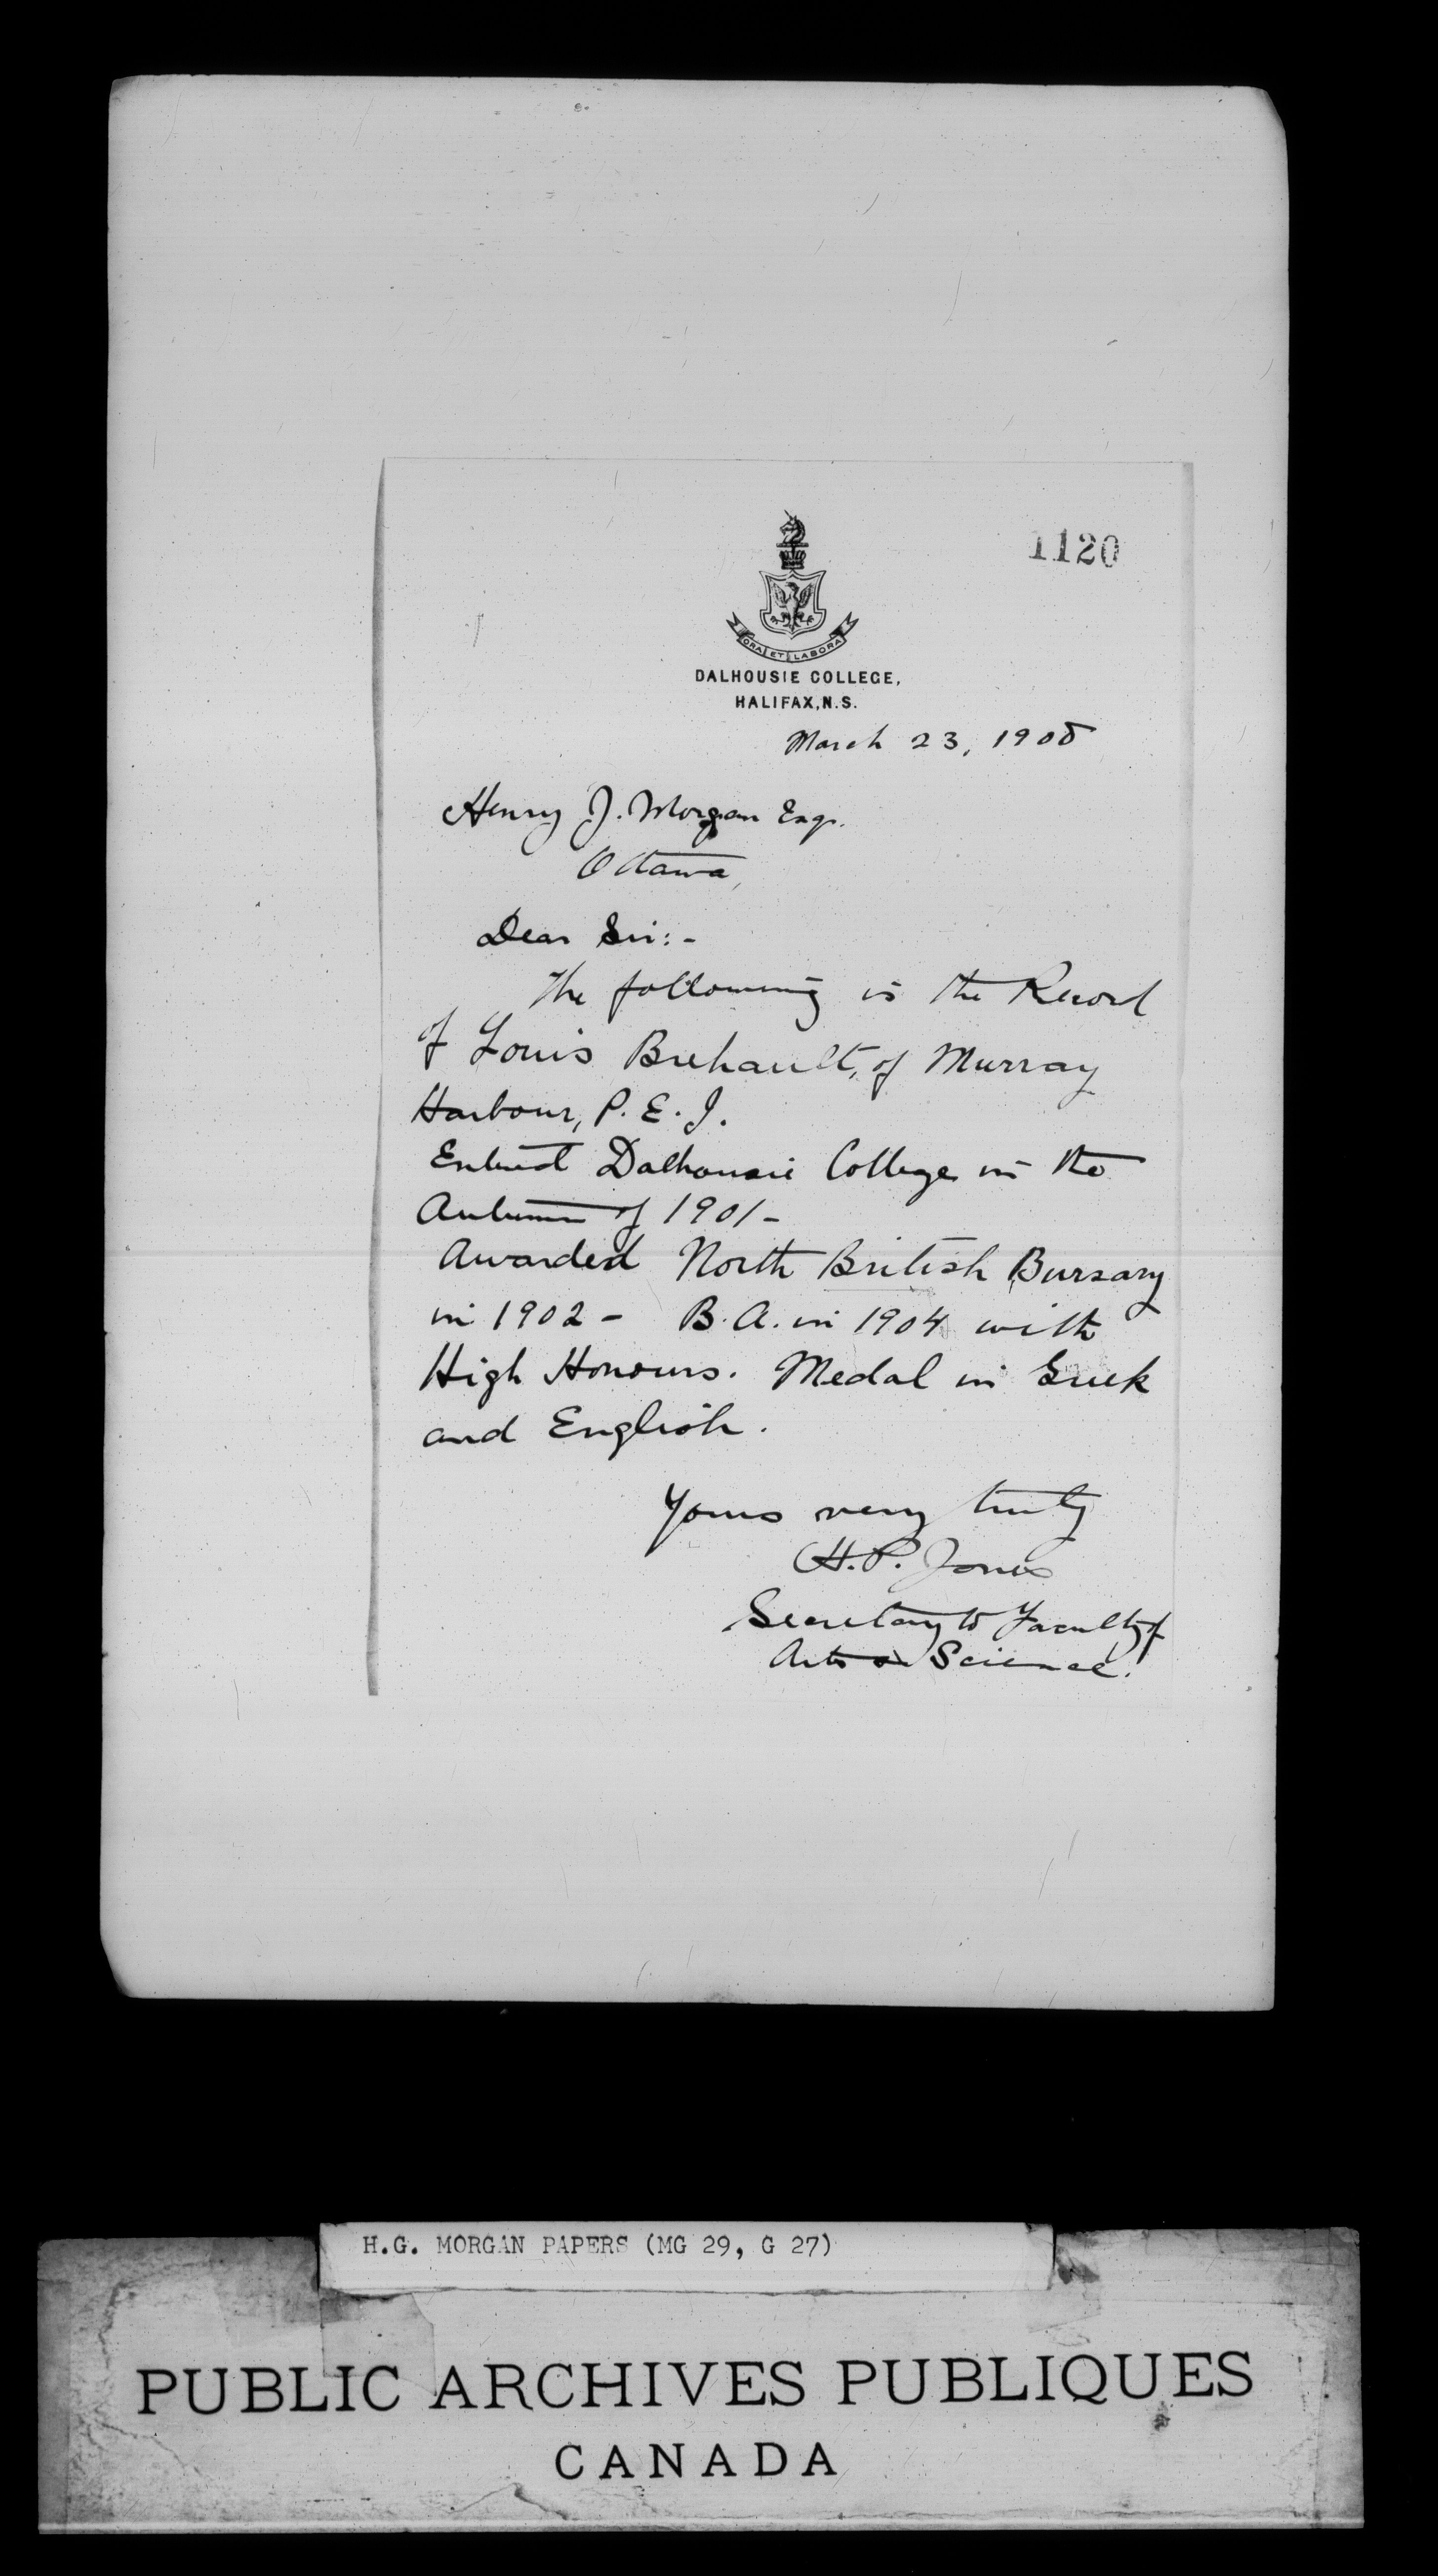 1120
ORA ET LABORA
DALHOUSIE COLLEGE,
HALIFAX, N.S.
March 23, 1908
Henry J. Morgan Esqr.
Ottawa,
Dear Sir:-
The following is the Record
of Louis Brehault, of Murray
Harbour, P. E. I.
Entered Dalhousie College in the
Autumn of 1901-
Awarded North British Bursary
in 1902 - B.A. in 1904 with
High Honours. Medal in Greek
and English.
Yours very truly
H.P. Jones
Secretary to Faculty of
Arts & Science.
H.G. MORGAN PAPERS (MG 29, G 27)
PUBLIC ARCHIVES PUBLIQUES
CANADA